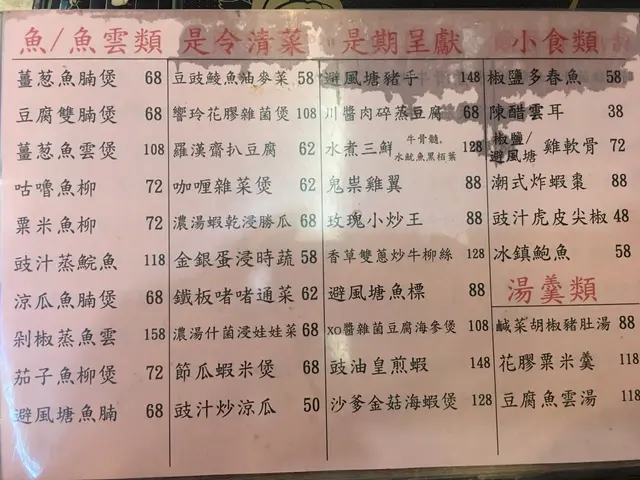 魚/魚雲類
薑葱魚腩煲 68
豆腐雙腩煲 68
薑葱魚雲煲 108
咕嚕魚柳 72
粟米魚柳 72
豉汁蒸鯇魚 118
涼瓜魚腩煲 68
剁椒蒸魚雲 158
茄子魚柳煲 72
避風塘魚腩 68
是令清菜
豆豉鯪魚油麥菜 58
響玲花膠雜菌煲 108
羅漢齋扒豆腐 62
咖喱雜菜煲 62
濃湯蝦乾浸勝瓜 68
金銀蛋浸時蔬 58
鐵板啫啫通菜 62
濃湯什菌浸娃娃菜 68
節瓜蝦米煲 68
豉汁炒涼瓜 50
是期呈獻
避風塘豬手 148
川醬肉碎蒸豆腐 68
水煮三鮮 牛骨髓, 水魷魚黑栢葉 128
鬼祟雞翼 88
玫瑰小炒王 88
香草雙蔥炒牛柳絲 128
避風塘魚標 88
XO醬雜菌豆腐海參煲 108
豉油皇煎蝦 148
沙爹金菇海蝦煲 128
小食類
椒鹽多春魚 58
陳醋雲耳 38
椒鹽/避風塘 雞軟骨 72
潮式炸蝦棗 88
豉汁虎皮尖椒 48
冰鎮鮑魚 58
湯羹類
鹹菜胡椒豬肚湯 88
花膠粟米羹 118
豆腐魚雲湯 118